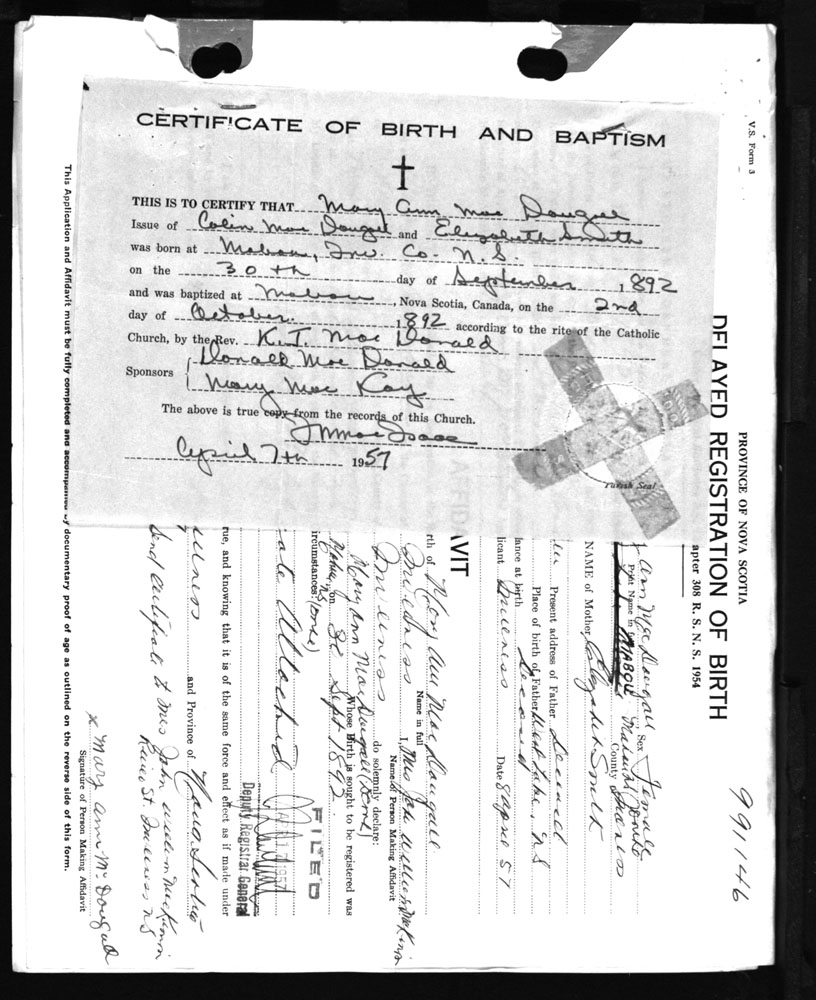 CERTIFICATE OF BIRTH AND BAPTISM
THIS IS TO CERTIFY THAT Mary Ann Mac Dougall
Issue of Colin Mac Dougall and Elizabeth Smith
was born at Mabou, Inv. Co. N.S.
on the 30th day of September, 1892
and was baptized at Mabou, Nova Scotia, Canada, on the 2nd
day of October 1892 according to the rite of the Catholic
Church, by the Rev. K. J. Mac Donald
Sponsors { Donald Mac Donald
Mary Mac Kay
The above is true copy from the records of this Church.
April 7th 1957
Parish Seal
V.S. Form 3
991146
PROVINCE OF NOVA SCOTIA
DELAYED REGISTRATION OF BIRTH
apter 308 R. S. N. S. 1954
Ann MacDougall Sex Female
Print Name in
MABOU County Inverness
NAME OF Mother Elizabeth Smith
Present address of Father Deceased
Place of birth of Father West Lake, N.S
lance at birth Deceased
licant Inverness Date 8 April 57
AFFIDAVIT
rth of Mary Ann MacDougall
Name in full
Inverness I, Mrs John William McKinnon
Name of Person Making Affidavit
Inverness do solemnly declare:
Mary Ann MacDougall (Born)
Whose Birth is sought to be registered was
Mabou NS on 30 Sept 1892
ircumstances: (over)
FILED
APR 17 1957
ate Attached
Deputy Registrar General
rue, and knowing that it is of the same force and effect as if made under
erness and Province of Nova Scotia
Send certificate to Mrs John William McKinnon
St. Inverness NS
x Mary Ann McDougall
Signature of Person Making Affidavit
This Application and Affidavit must be fully completed and accompanied by documentary proof of age as outlined on the reverse side of this form.